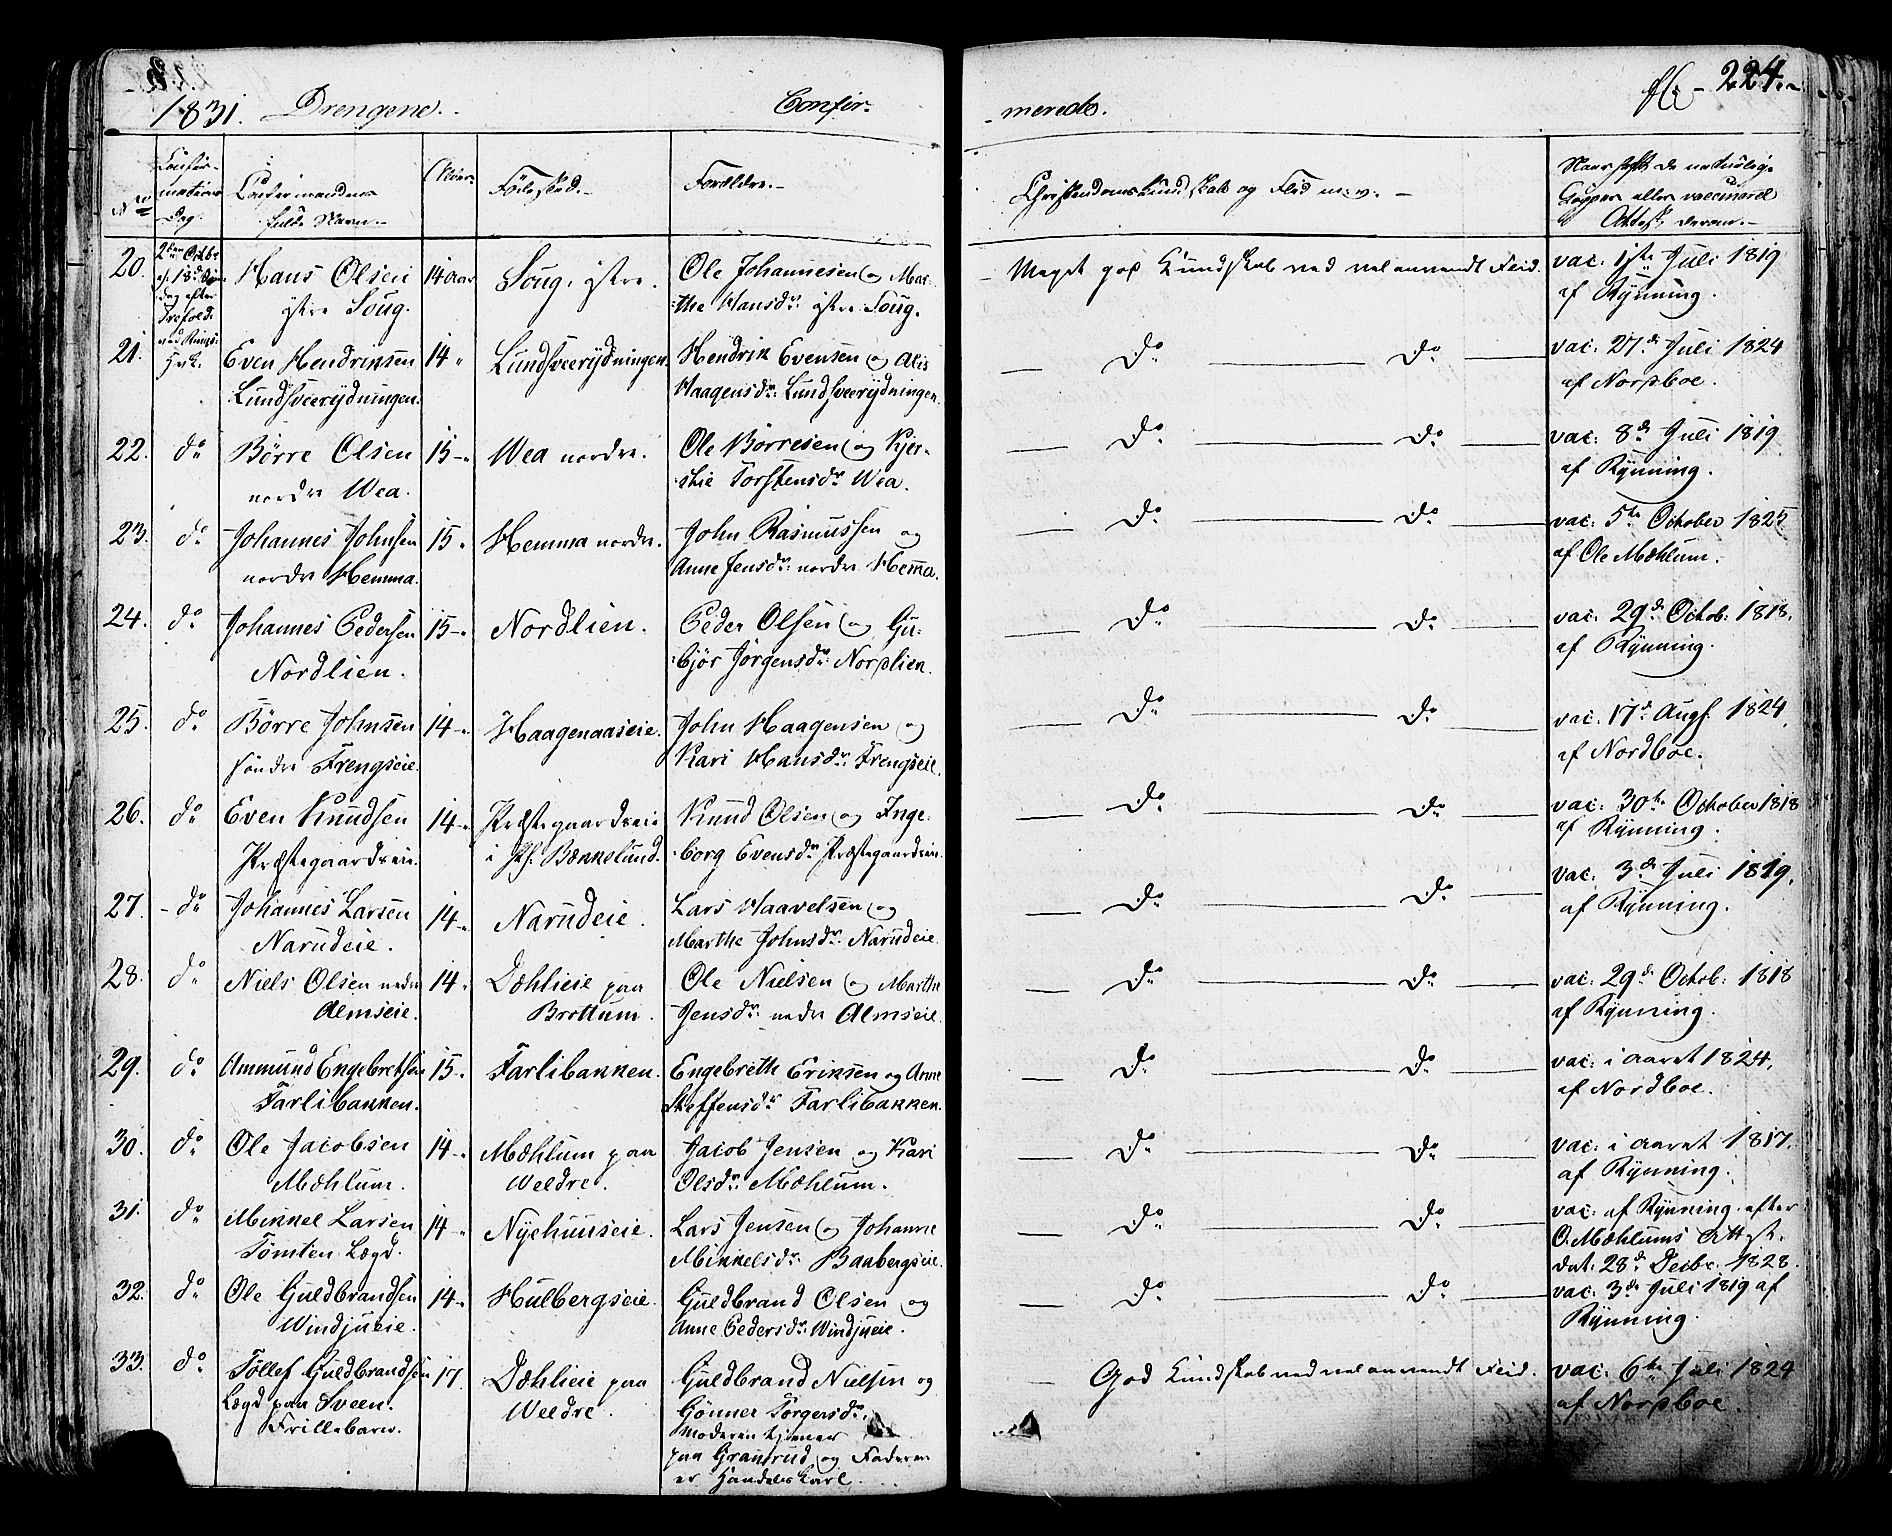 1831. Drengene. Confir- merede. 224.
No Confir- mations Dag. Confirmandens fulde Navn. Alder. Födested. Forældre. Christendoms Kundskab og Flid m: v: Naar havt de naturlige Copper eller vaccinered Attest derom.
20. 2den Octbr af 18d Søn- dag efter Trefold: Hans Olsen ystre Soug. 14 aar Soug, ystre. Ole Johannesen og Mar- the Hansdr: ystre Soug. Meget god Kundskab ved vel anvendt Flid. vac: 1ste Juli 1819 af Rynning.
21. Even Hendriksen Lundsveerydningen. 14 Lundsveerydningen. Hendrik Evensen og Alis Haagensdr: Lundsveerydningen. Do Do vac: 27de Juli 1824 af Nordboe.
22. do Börre Olsen nordre Wea. 15 Wea nordre. Ole Börresen og Kjer- stie Torstensdr: Wea. Do Do vac: 8de Juli 1819 af Rynning.
23. do Johannes Johnsen nordre Hemma. 15 Hemma nordre. John Rasmussen og Anne Jensdr: nordre Hemma. Do Do vac: 5te October 1825 af Ole Mæhlum.
24. do Johannes Pedersen Nordlien. 15 Nordlien. Peder Olsen og Gu- björ Jörgensdr: Nordlien. Do Do vac: 29de Octob: 1818. af Rynning.
25. do Börre Johnsen söndre Frengseie. 14 Haagenaaseie. John Haagensen og Kari Hansdr: Frengseie. Do Do vac: 17de Augs. 1824. af Nordboe.
26. do Even Knudsen Præstegaardseie. 14 Præstegaardseie i Bænkelund. Knud Olsen og Inge- borg Evensdr: Præstegaardseie. Do Do vac: 30te October 1818 af Rynning.
27. do Johannes Larsen Narudeie. 14 Narudeie. Lars Haavelsen og Marthe Johnsdr: Narudeie. Do Do vac: 3de Juli 1819. af Rynning.
28. do Niels Olsen nedre Almseie. 14 Dæhlieie paa Brottum. Ole Nielsen og Marthe Jensdr: nedre Almseie. Do Do vac: 29de Octob: 1818 af Rynning.
29. do Ammund Engebretsen Farlibakken. 15 Farlibakken. Engebreth Eriksen og Anne Steffensdr: Farlibakken. Do Do vac: i aaret 1824. af Nordboe.
30. do Ole Jacobsen Mæhlum. 14 Mæhlum paa Weldre. Jacob Jensen og Kari Olsdr: Mæhlum. Do Do vac: i aaret 1817. af Rynning.
31. do Mikkel Larsen Tömten Lægd. 14 Nyehuuseie. Lars Jensen og Johanne Mikkelsdr: Baabergseie. Do Do vac: af Rynning efter O: Mæhlums Attest. dat: 28de Decbr. 1828.
32. do Ole Guldbrandsen Windjueie. 14 Hulbergseie. Guldbrand Olsen og Anne Pedersdr: Windjueie. Do Do vac: 3de Juli 1819 af Rynning.
33. do Tollef Guldbrandsen Lægd paa Sveen. Frillebarn. 17 Dæhlieie paa Weldre. Guldbrand Nielsen og Gönner Torgersdr: Moderen tjener paa Granrud og Faderen er Handelskarl. God Kundskab ved vel anvendt Flid. vac: 6te Juli 1824 af Nordboe.